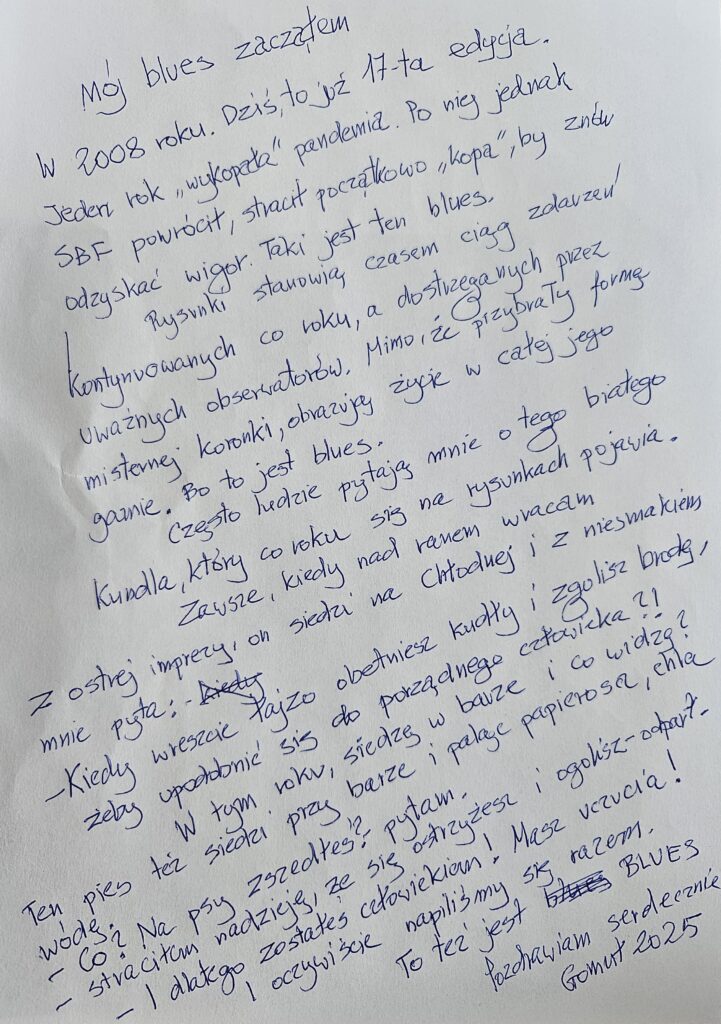 Mój blues zacząłem
W 2008 roku. Dziś, to już 17-ta edycja.
Jeden rok „wykopała" pandemia. Po niej jednak
SBF powrócił, stracił początkowo „kopa", by znów
odzyskać wigor. Taki jest ten blues.
Rysunki stanowią czasem ciąg zdarzeń
kontynuowanych co roku, a dostrzeganych przez
uważnych obserwatorów. Mimo, że przybrały formę
misternej koronki, obrazują życie w całej jego
gamie. Bo to jest blues.
Często ludzie pytają mnie o tego białego
kundla, który co roku się na rysunkach pojawia.
Zawsze, kiedy nad ranem wracam
z ostrej imprezy, on siedzi na Chłodnej i z niesmakiem
mnie pyta: - kiedy
- Kiedy wreszcie łajzo obetniesz kudły i zgolisz brodę,
żeby upodobnić się do porządnego człowieka?!
W tym roku, siedzę w barze i co widzę?
Ten pies też siedzi przy barze i paląc papierosa, chla
wódę.
- Co? Na psy zszedłeś? pytam.
- straciłem nadzieję, że się ostrzyżesz i ogolisz - odparł.
- I dlatego zostałeś człowiekiem! Masz uczucia!
I oczywiście napiliśmy się razem.
To też jest blues BLUES
Pozdrawiam serdecznie
Gomut 2025